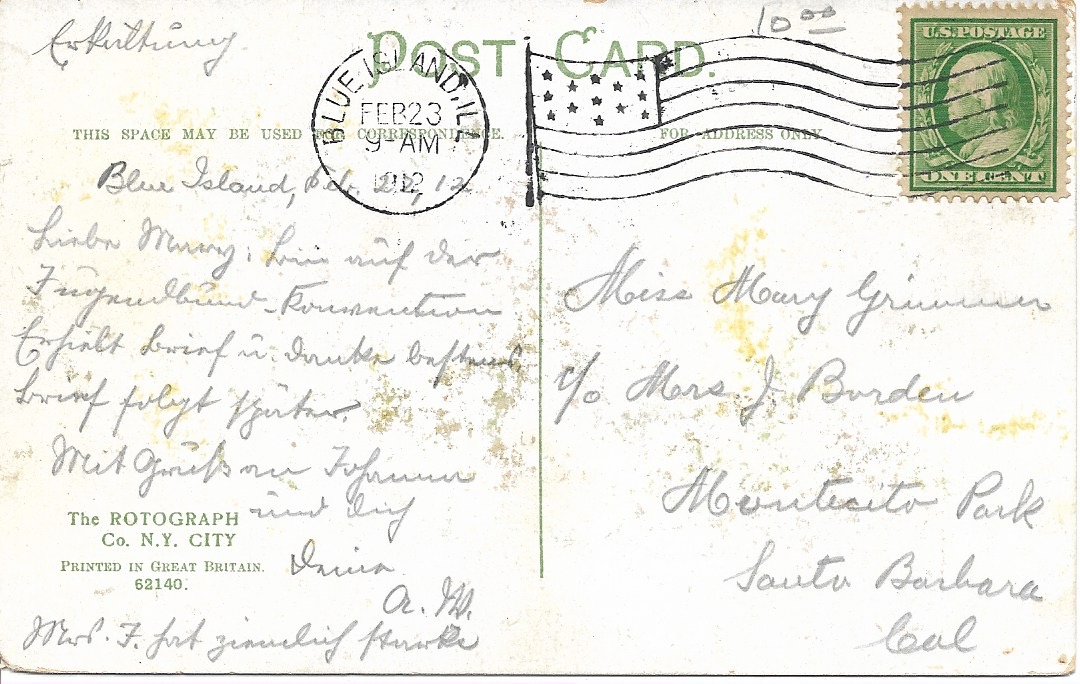 Erkältung.
POST CARD.
10 00
U.S. POSTAGE
ONE CENT
BLUE ISLAND, ILL
FEB 23
9-AM
1912
THIS SPACE MAY BE USED FOR CORRESPONDENCE.
FOR ADDRESS ONLY
Blue Island, Feb. 12
Liebe Mary, bin auf der
Jugendbund-Konvention
Erhielt Brief u. danke bestens
Brief folgt später.
Mit Gruß an Johanna
und dich
Deine
A. W.
Mrs. F. hat ziemlich starke
The ROTOGRAPH
Co. N.Y. CITY
PRINTED IN GREAT BRITAIN.
62140.
Miss Mary Grimmer
c/o Mrs J. Borden
Montecito Park
Santa Barbara
Cal